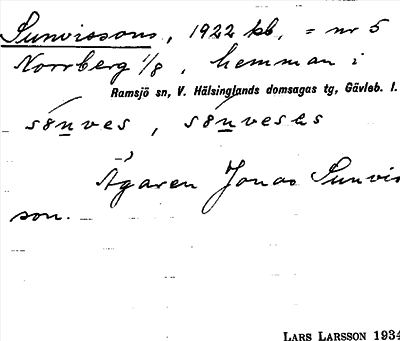 Sunvissons, 1922 kb, = nr 5
Norrberg 1/8, hemman i
Ramsjö sn, V. Hälsinglands domsagas tg, Gävleb. l.
sönves, sönveses
Ägaren Jonas Sunvis
son.
LARS LARSSON 1934